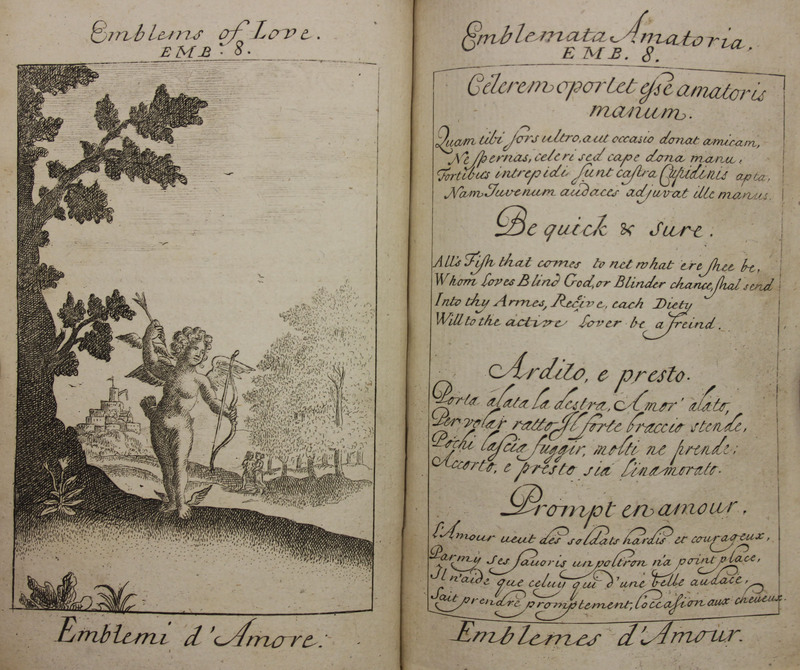 Emblems of Love.
EMB. 8.
Emblemi d'Amore.
Emblemata Amatoria.
EMB. 8.
Celerem oportet esse amatoris
manum.
Quam tibi sors ultro, aut occasio donat amicam,
Ne spernas, celeri sed cape dona manu,
Fortibus intrepidis sunt castra Cupidinis apta,
Nam Juvenum audaces adjuvat ille manus.
Be quick & sure.
All's Fish that comes to net what e're shee be,
Whom Loves Blind God, or Blinder chance, shal send
Into thy Armes, Recive, each Diety
Will to the active Lover be a freind.
Ardito, e presto.
Porta alata la destra, Amor' alato,
Per volar ratto, Il forte braccio stende,
Pochi lascia fuggir, molti ne prende;
Accorto, e presto sia l'inamorato.
Prompt en amour.
L'Amour veut des soldats hardis et courageux,
Parmy ses favoris un poltron n'a point place,
Il n'aide que celuy qui d'une belle audace,
Sait prendre promptement, l'occasion aux cheveux.
Emblemes d'Amour.